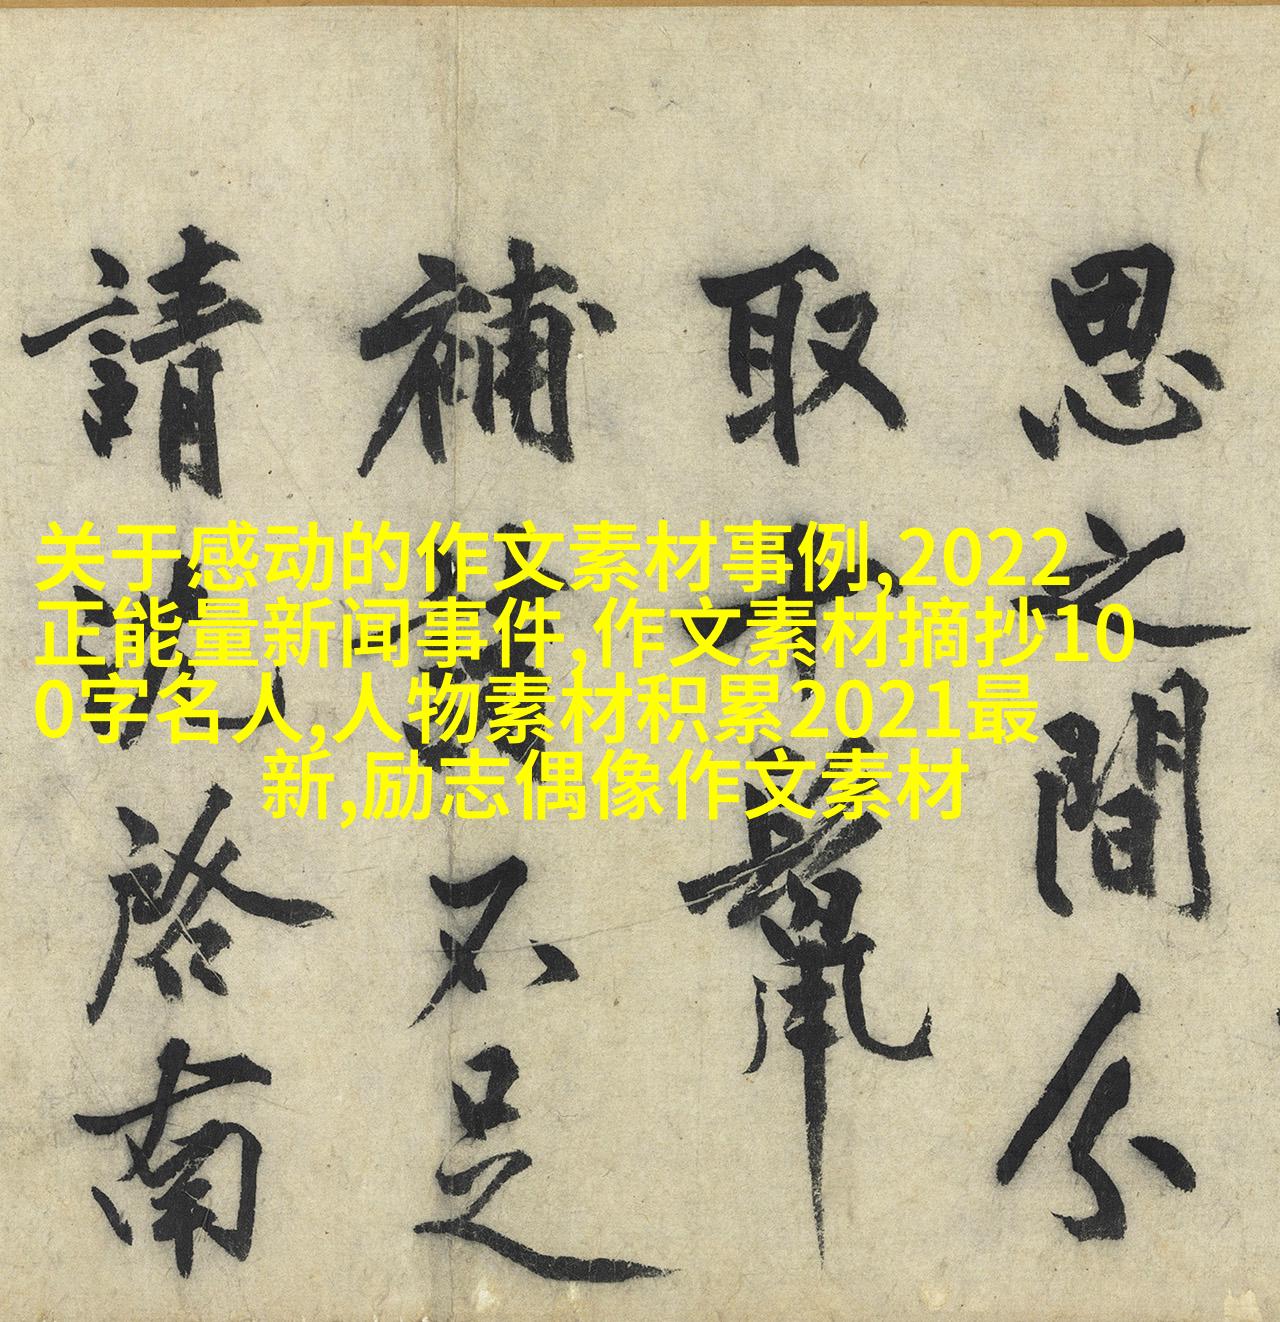 关于感动的作文素材事例,2022
正能量新闻事件,作文素材摘抄10
0字名人,人物素材积累2021最
新,励志偶像作文素材
思之間分
取十鬣
補諸不足
請沈啓南